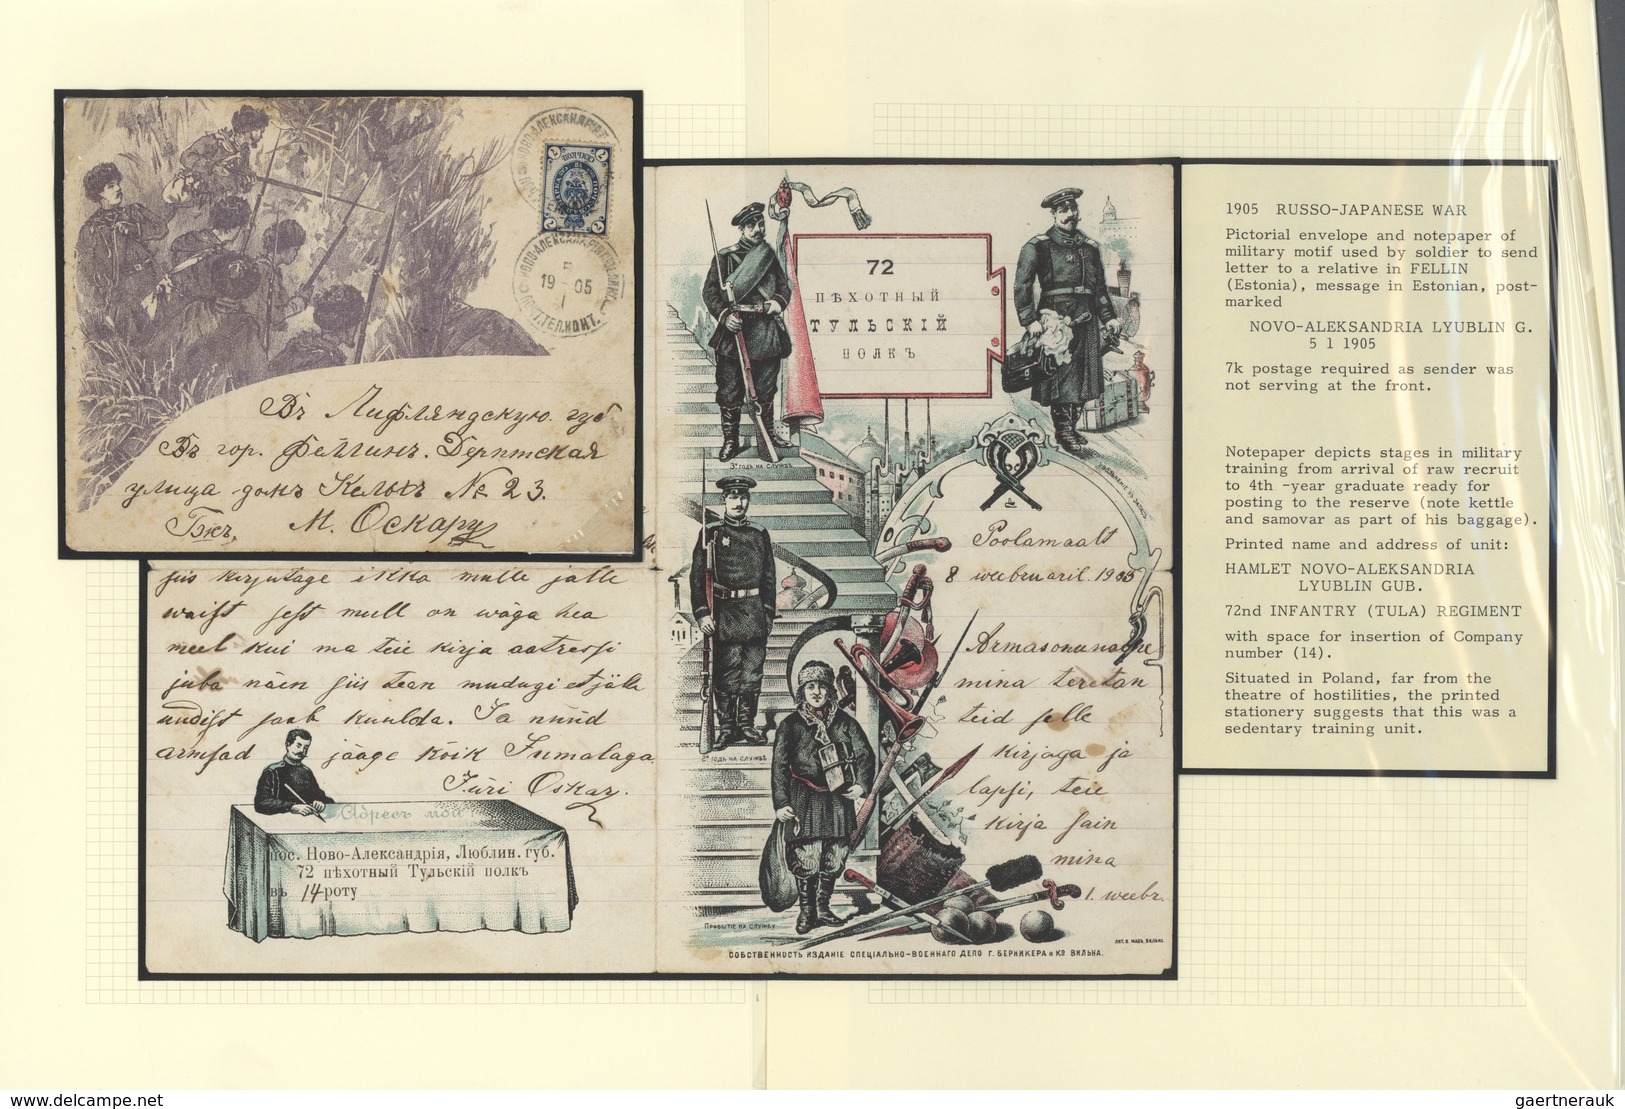 НОВО-АЛЕКСАНДРІЯ
7
7
7
7
5
19 - 05
I
ПОЧТ.ТЕЛ.КОНТ.
Въ Лифляндскую губ
Въ гор. Феллинъ. Дерптская
улица домъ Кельхъ № 23.
М. Оскару
siis kirjutage ikka mulle jälle
waist sest mull on wäga hea
meel kui ma teie kirja aatressi
juba näen siis tean mudugi et jälle
uudist saab kuulda. Ja nüüd
armsad jääge kõik Jumalaga
Jüri Oskar.
Адресъ мой:
пос. Ново-Александрія, Люблин. губ.
72 пѣхотный Тульскій полкъ
въ 14 роту
72
ПѢХОТНЫЙ
ТУЛЬСКІЙ
ПОЛКЪ
3й ГОДЪ НА СЛУЖБѢ
УВОЛЬНЕНІЕ ВЪ ЗАПАСЪ
2й ГОДЪ НА СЛУЖБѢ
ПРИБЫТІЕ НА СЛУЖБУ
Poolamaalt
8 weebruaril. 1905
Armas onunaene
mina teretan
teid selle
kirjaga ja
lapsi, teie
kirja sain
mina
1. weebr.
СОБСТВЕННОСТЬ ИЗДАНІЕ СПЕЦІАЛЬНО-ВОЕННАГО ДЕПО Г. БЕРНИКЕРА и Ко ВИЛЬНА.
1905 RUSSO-JAPANESE WAR
Pictorial envelope and notepaper of
military motif used by soldier to send
letter to a relative in FELLIN
(Estonia), message in Estonian, post-
marked
NOVO-ALEKSANDRIA LYUBLIN G.
5 1 1905
7k postage required as sender was
not serving at the front.
Notepaper depicts stages in military
training from arrival of raw recruit
to 4th -year graduate ready for
posting to the reserve (note kettle
and samovar as part of his baggage).
Printed name and address of unit:
HAMLET NOVO-ALEKSANDRIA
LYUBLIN GUB.
72nd INFANTRY (TULA) REGIMENT
with space for insertion of Company
number (14).
Situated in Poland, far from the
theatre of hostilities, the printed
stationery suggests that this was a
sedentary training unit.
www.delcampe.net
gaertnerauk